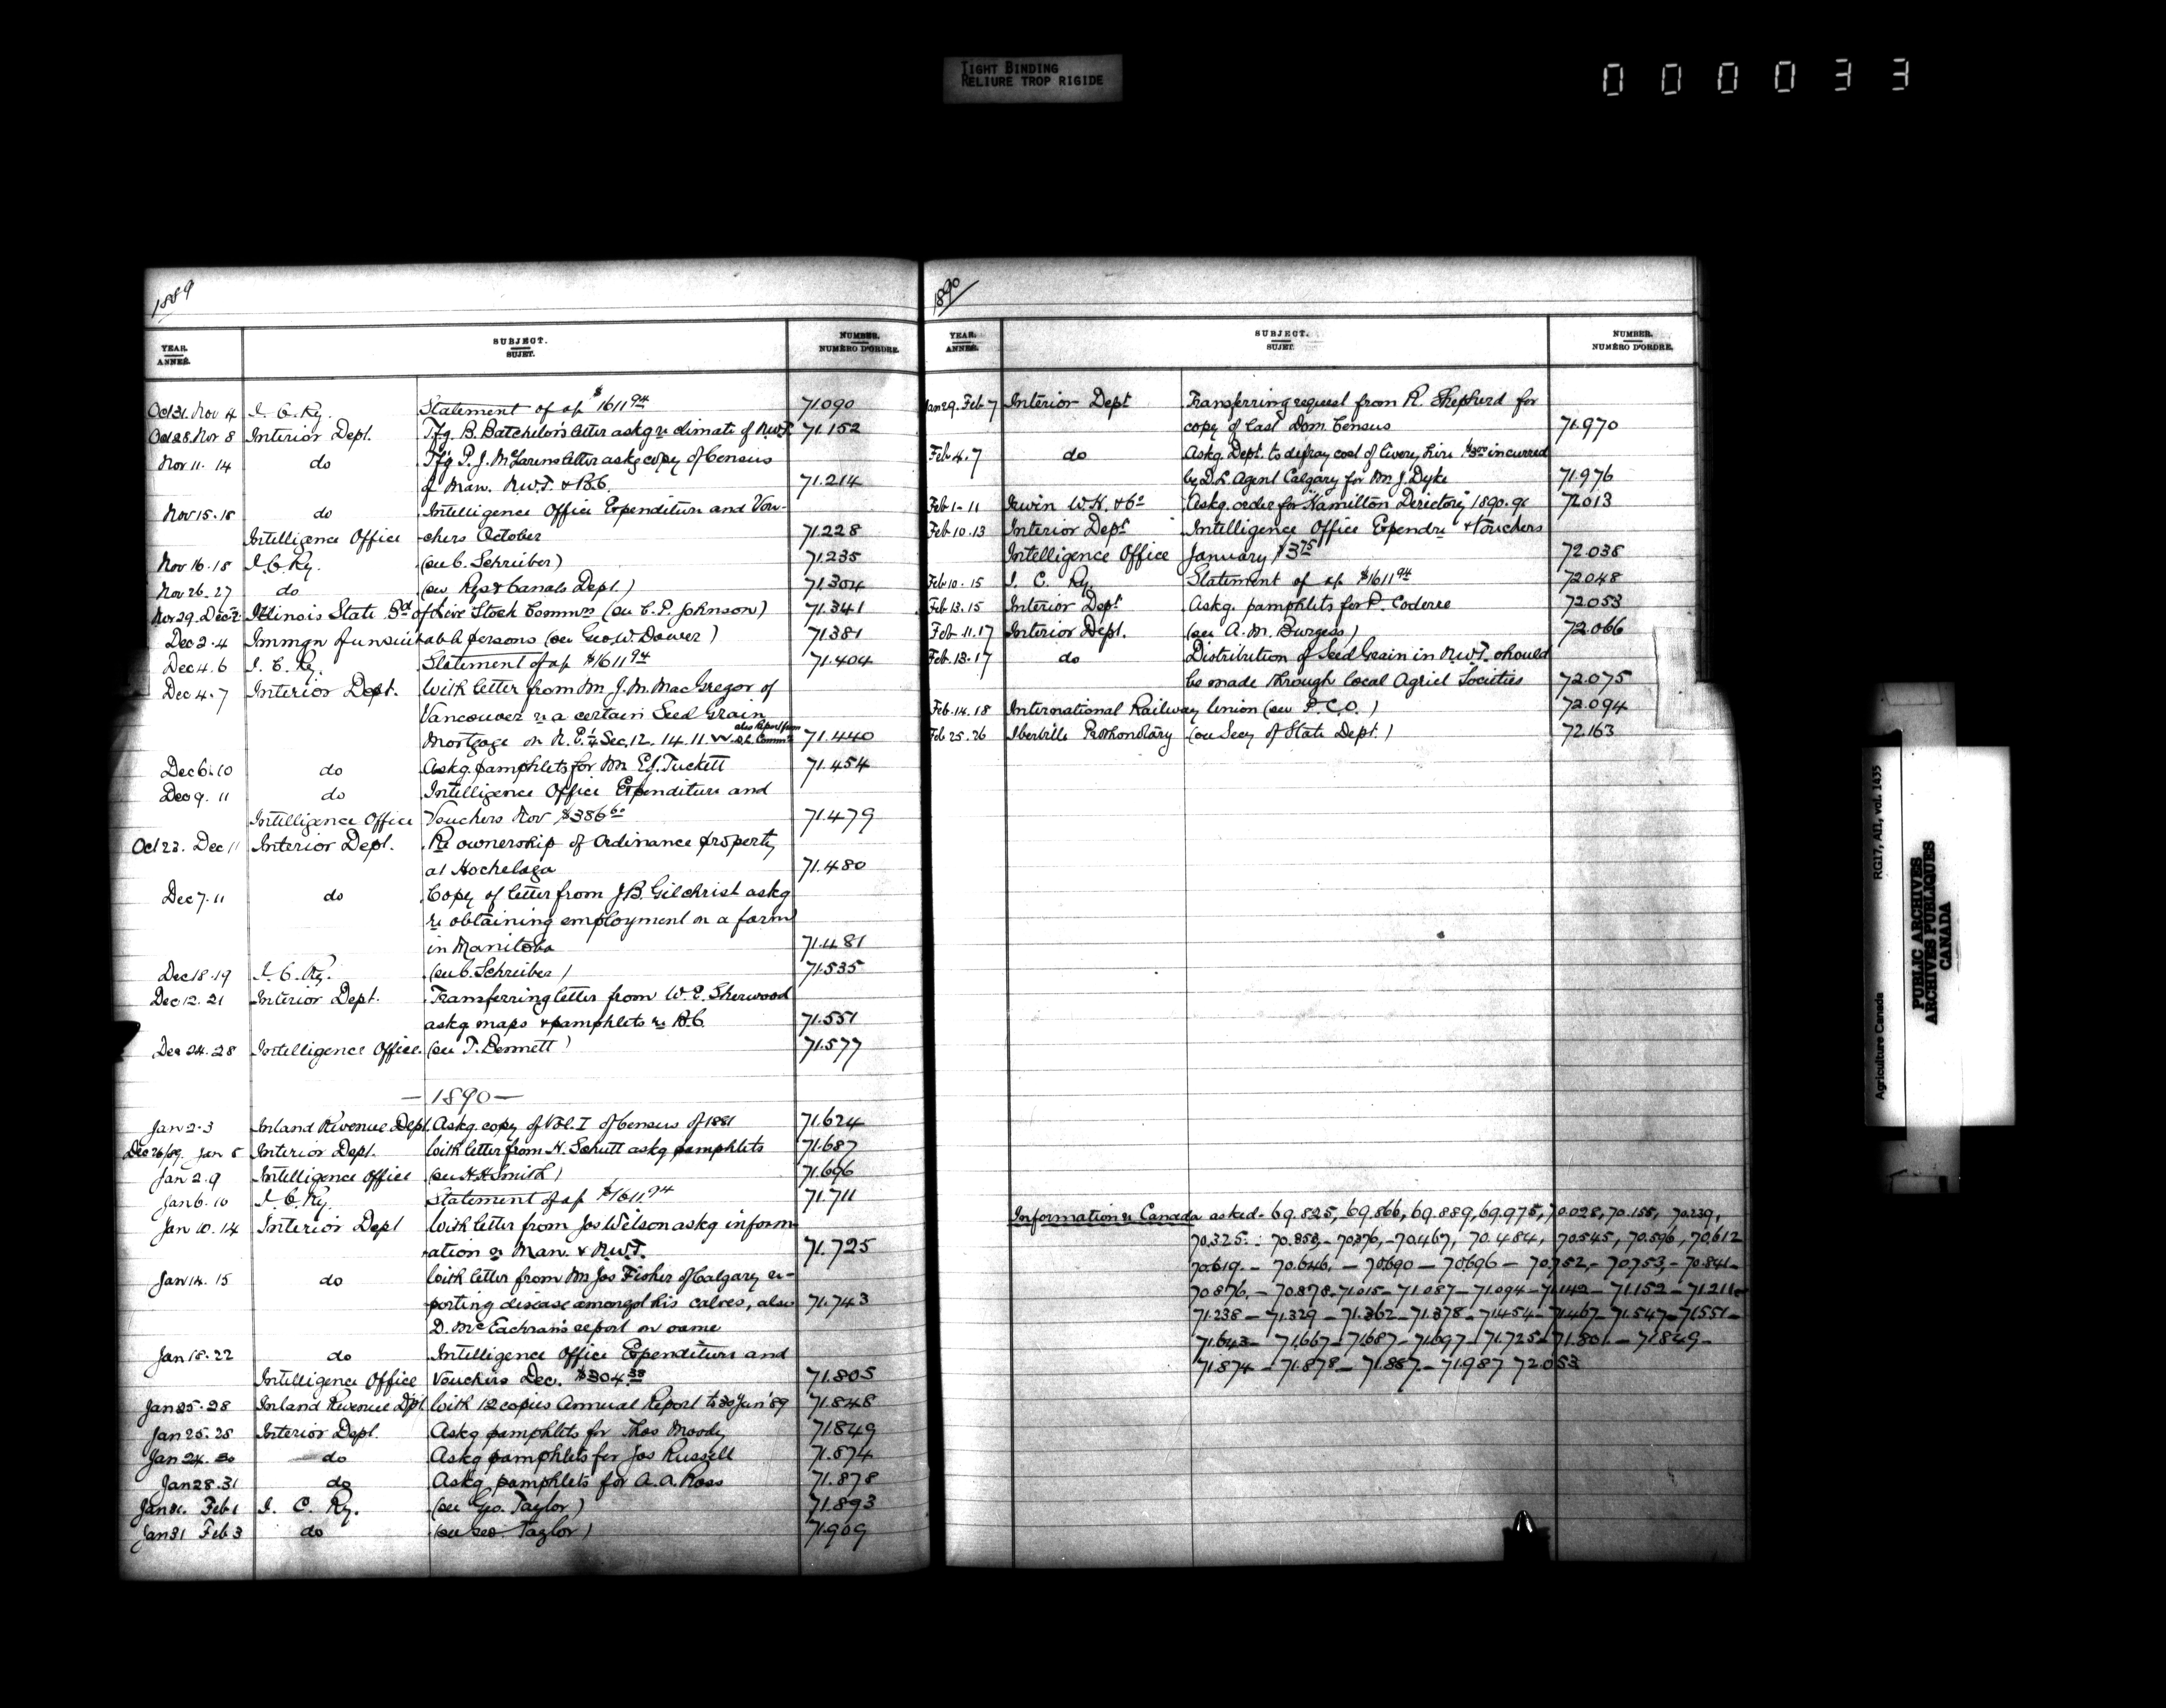 TIGHT BINDING
RELIURE TROP RIGIDE
000033
1889
YEAR. ANNEÉ. SUBJECT. SUJET. NUMBER. NUMÉRO D'ORDRE.
Oct 31. Nov 4 I. C. Ry. Statement of a/c $1611 94 71.090
Oct 28. Nov 8 Interior Dept. Tfg. B. Batchelor's letter askg re climate of N.W.T. 71.152
Nov 11. 14 do Tfg P. J. McLarens letter askg copy of Census
of Man. N.W.T. & B.C. 71.214
Nov 15. 18 do Intelligence Office Expenditure and Vou-
Intelligence Office chers October 71.228
Nov 16. 18 I. C. Ry. (see C. Schreiber) 71.235
Nov 26. 27 do (see Rys & Canals Dept.) 71.304
Nov 29. Dec 2 Illinois State Bd of Live Stock Commrs (see C. P. Johnson) 71.341
Dec 2. 4 Immgn of unsuitable persons (see Geo. W. Dower) 71.381
Dec 4. 6 I. C. Ry. Statement of a/c $1611 94 71.404
Dec 4. 7 Interior Dept. With letter from Mr J. M. MacGregor of
Vancouver re a certain Seed Grain
Mortgage on N.E. 1/4 Sec. 12. 14. 11. W. also Report from D.L. Commr 71.440
Dec 6. 10 do Askg. pamphlets for Mr E. J. Tuckett 71.454
Dec 9. 11 do Intelligence Office Expenditure and
Intelligence Office Vouchers Nov $386 60 71.479
Oct 23. Dec 11 Interior Dept. Re ownership of Ordinance property
at Hochelaga 71.480
Dec 7. 11 do Copy of letter from J.B. Gilchrist askg
re obtaining employment on a farm
in Manitoba 71.481
Dec 18. 19 I. C. Ry. (see C. Schreiber) 71.535
Dec 12. 21 Interior Dept. Transferring letter from W. E. Sherwood
askg maps & pamphlets re B.C. 71.551
Dec 24. 28 Intelligence Office. (see T. Bennett) 71.577
— 1890 —
Jan 2. 3 Inland Revenue Dept. Askg. copy of Vol. I of Census of 1881 71.624
Dec 26/89. Jan 8 Interior Dept. With letter from H. Schutt askg pamphlets 71.687
Jan 2. 9 Intelligence Office (see H. H. Smith) 71.696
Jan 6. 10 I. C. Ry. Statement of a/c $1611. 94 71.711
Jan 10. 14 Interior Dept With letter from Jas Wilson askg inform-
ation re Man. & N.W.T. 71.725
Jan 14. 15 do With letter from Mr Jos Fisher of Calgary re-
porting disease amongst his calves, also 71.743
D. McEachran's report on same
Jan 18. 22 do Intelligence Office Expenditure and
Intelligence Office Vouchers Dec. $304. 38 71.805
Jan 25. 28 Inland Revenue Dept. With 12 copies Annual Report to 30 Jun '89 71.848
Jan 25. 28 Interior Dept. Askg pamphlets for Thos Moody 71.849
Jan 24. 30 do Askg pamphlets for Jas Russell 71.874
Jan 28. 31 do Askg. pamphlets for A. A. Ross 71.878
Jan 31. Feb 1 I. C. Ry. (see Geo. Taylor) 71.893
Jan 31 Feb 3 do (see Geo. Taylor) 71.909
1890
YEAR. ANNÉE. SUBJECT. SUJET. NUMBER. NUMÉRO D'ORDRE.
Jan 29. Feb 7 Interior Dept Transferring request from R. Shepherd for
copy of last Dom. Census 71.970
Feb 4. 7 do Askg. Dept. to defray cost of livery hire $3 00 incurred
by D. L. Agent Calgary for Mr J. Dyke 71.976
Feb 1 - 11 Irwin W. H. & Co Askg. order for "Hamilton Directory" 1890-91 72.013
Feb 10. 13 Interior Dept Intelligence Office Expendre & Vouchers
Intelligence Office January $3 75 72.038
Feb 10. 15 I. C. Ry. Statement of a/c $1611 94 72.048
Feb 13. 15 Interior Dept Askg. pamphlets for P. Coderre 72.053
Feb 11. 17 Interior Dept. (see A. M. Burgess) 72.066
Feb. 13. 17 do Distribution of Seed Grain in N.W.T. should
be made through local Agricl Societies 72.075
Feb. 14. 18 International Railway Union (see P. C. O.) 72.094
Feb 25. 26 Iberville Prothonotary (see Secy of State Dept.) 72.163
Information re Canada asked - 69.825, 69.866, 69.889, 69.975, 70.028, 70.155, 70.239,
70.325. - 70.358, - 70.376, - 70.467, 70.484, 70.545, 70.596, 70.612
70.619. - 70.646. - 70.690 - 70.696 - 70.752, - 70.753, - 70.841 -
70.876, - 70.878 - 71.015 - 71.087 - 71.094 - 71.142 - 71.152 - 71.211 -
71.238 - 71.329 - 71.362 - 71.378 - 71.454 - 71.467 - 71.547 - 71.551 -
71.643 - 71.667 - 71.687 - 71.697 - 71.725 - 71.801 - 71.849 -
71.874 - 71.878 - 71.887 - 71.987 72.053
Agriculture Canada RG17, AII, vol. 1435
PUBLIC ARCHIVES
ARCHIVES PUBLIQUES
CANADA